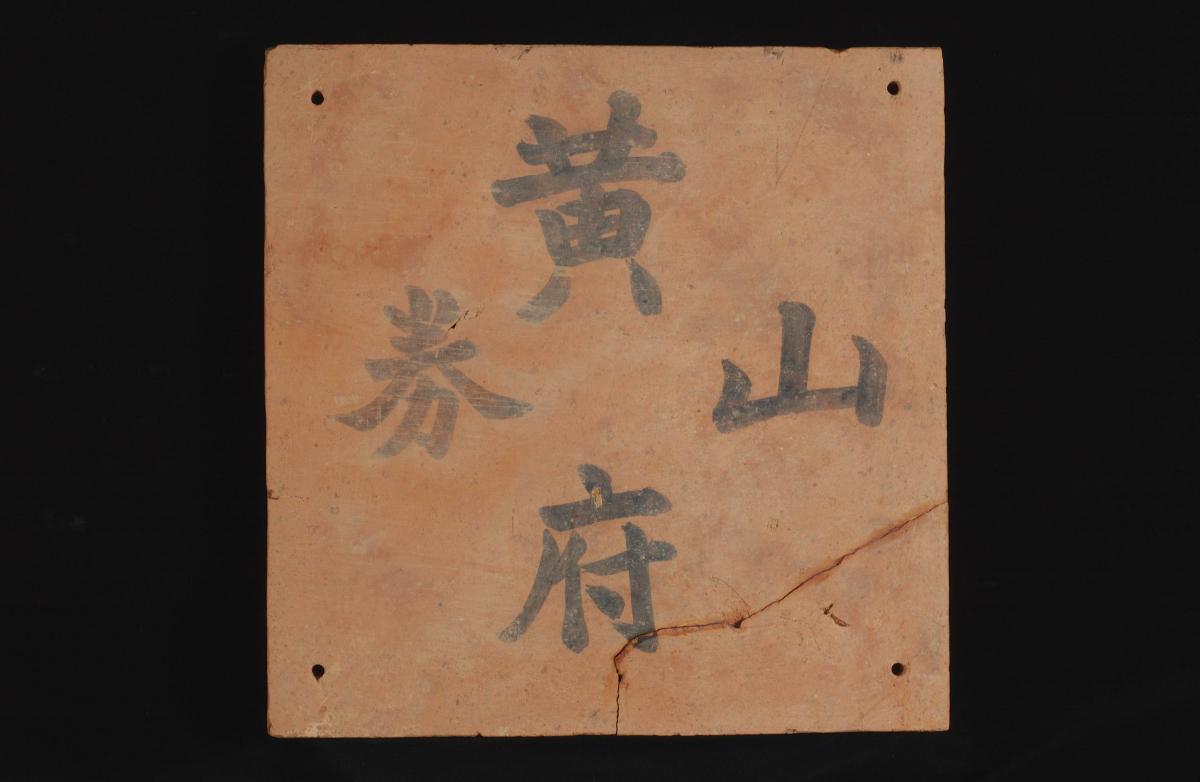 黄
山
府
券